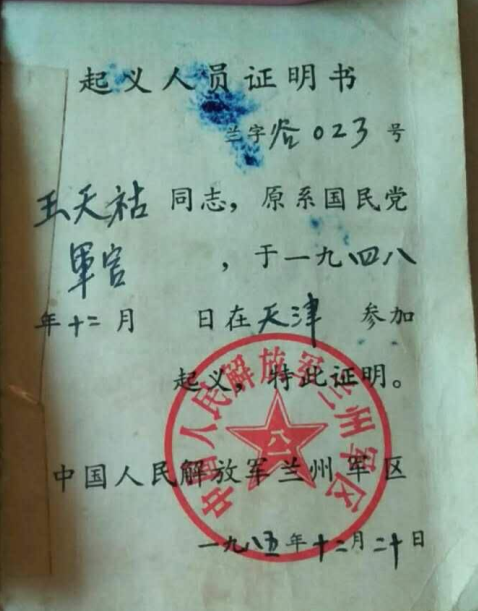 起义人员证明书
兰字谷023号
王天祜同志，原系国民党
軍官，于一九四八
年十二月 日在天津 参加
起义，特此证明。
中国人民解放军兰州军区
中国人民解放军兰州军区
八一
一九八五年十二月二十日